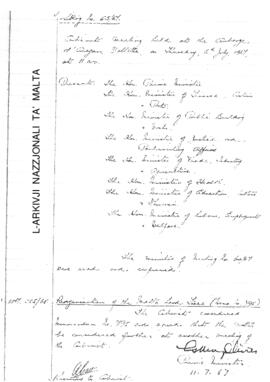 Meeting No. 65/67.
Cabinet meeting held at the Auberge
d'Aragon Valletta, on Thursday, 6th July 1967,
at 11 a.m.
Present. The Hon. Prime Minister
The Hon. Minister of Finance, Customs
+ Port.
The Hon. Minister of Public Building
+ Works.
The Hon. Minister of Justice and
Parliamentary Affairs
The Hon. Minister of Trade, Industry
+ Agriculture.
The Hon. Minister of Health.
The Hon. Minister of Education, Culture
+ Tourism.
The Hon. Minister of Labour, Employment
+ Welfare.
The minutes of Meeting No. 64/67
were read and confirmed.
L-ARKIVJI NAZZJONALI TA' MALTA
Reorganisation of the Malta Land Force
The Cabinet considered
Memorandum No. and agreed that the matter
be considered further at another meeting of
the Cabinet.
Prime Minister
11.7.67
Secretary to Cabinet